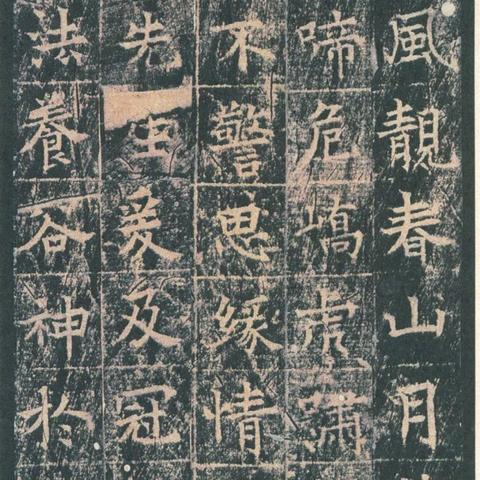 風靚春山月
啼危嶠虎
不警思緣情
先生爰及冠
法養谷神於